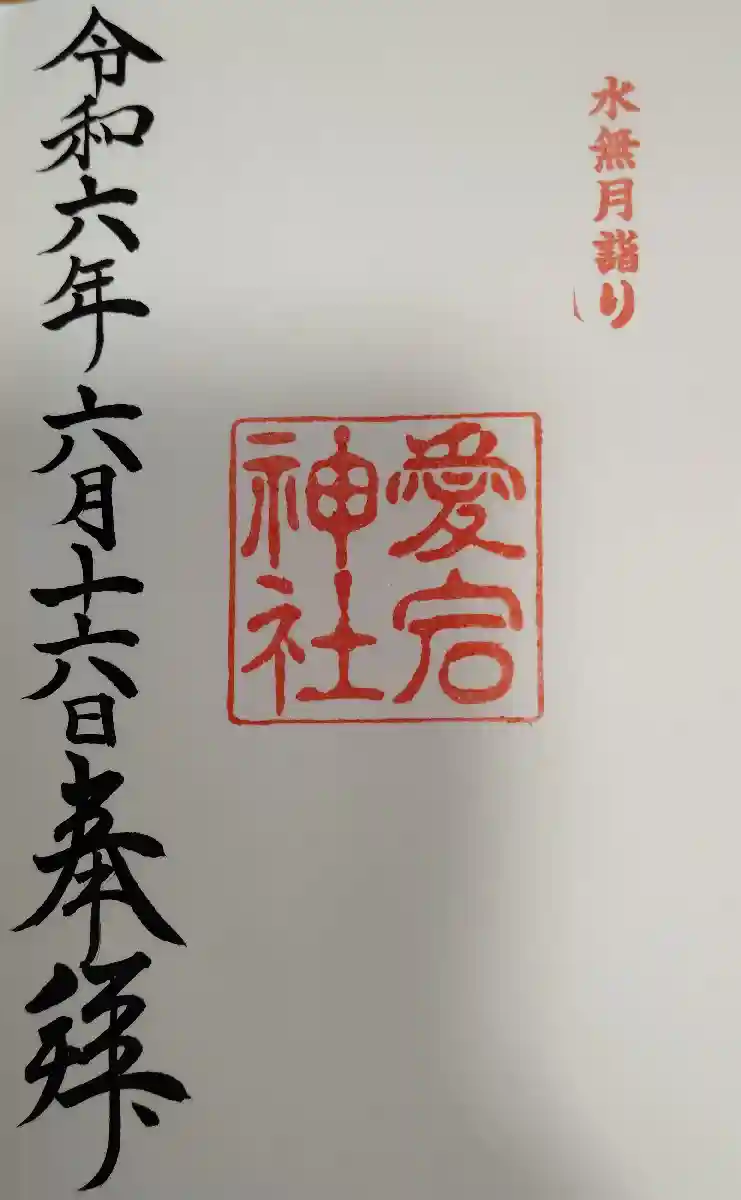 水無月詣り
愛宕
神社
令和六年六月十六日奉拝